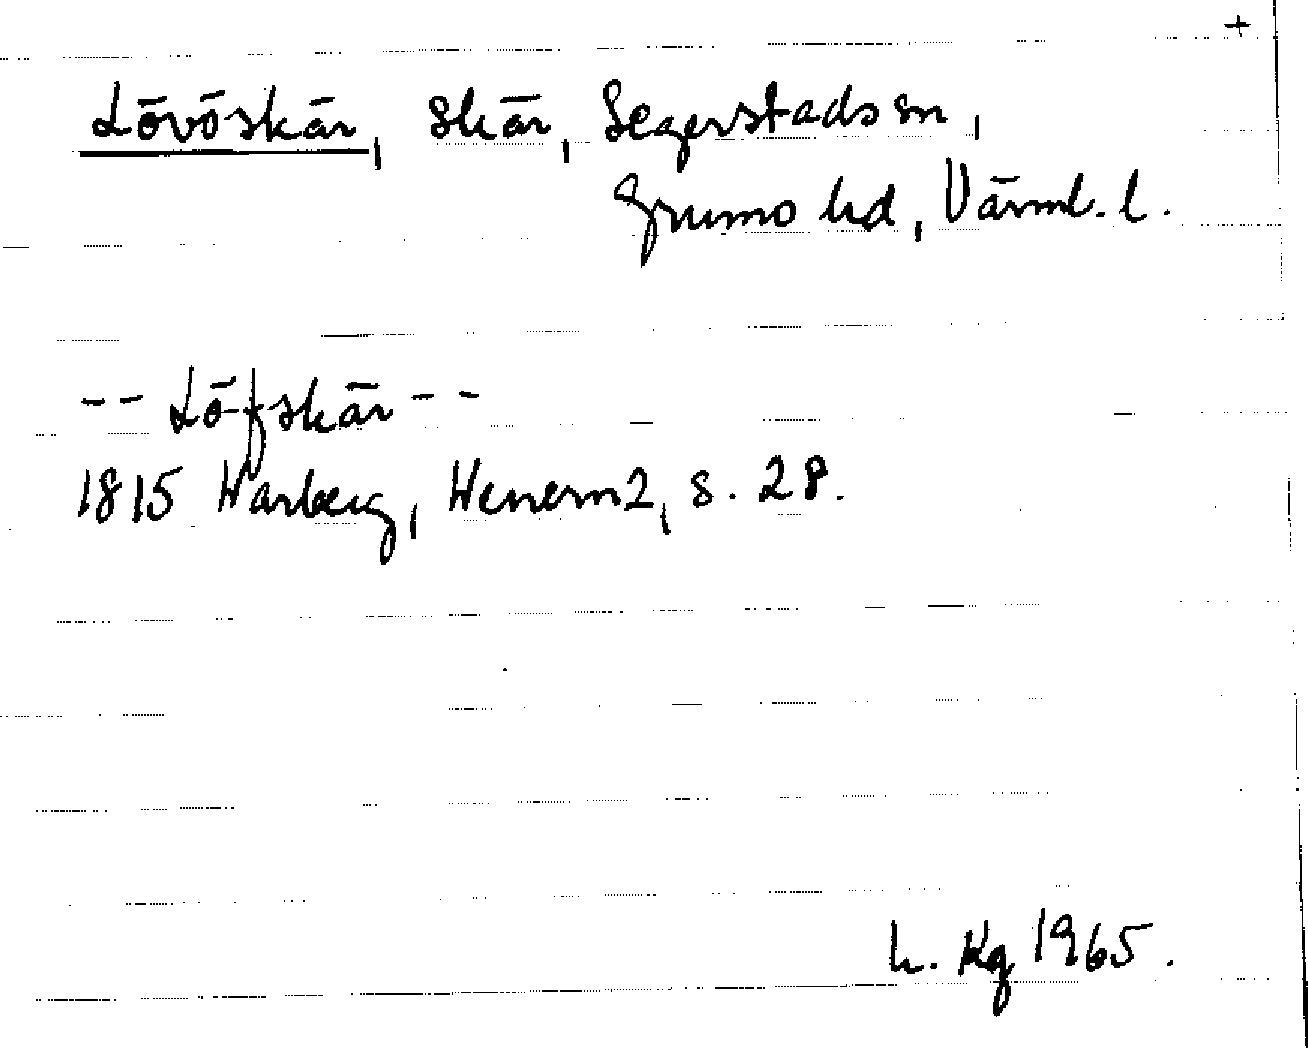 +
Lövöskär, skär, Segerstads sn,
Grums hd, Värml. l.
-- Löfskär --
1815 Warberg, Wenern 2, s. 28.
L. Kg 1965.